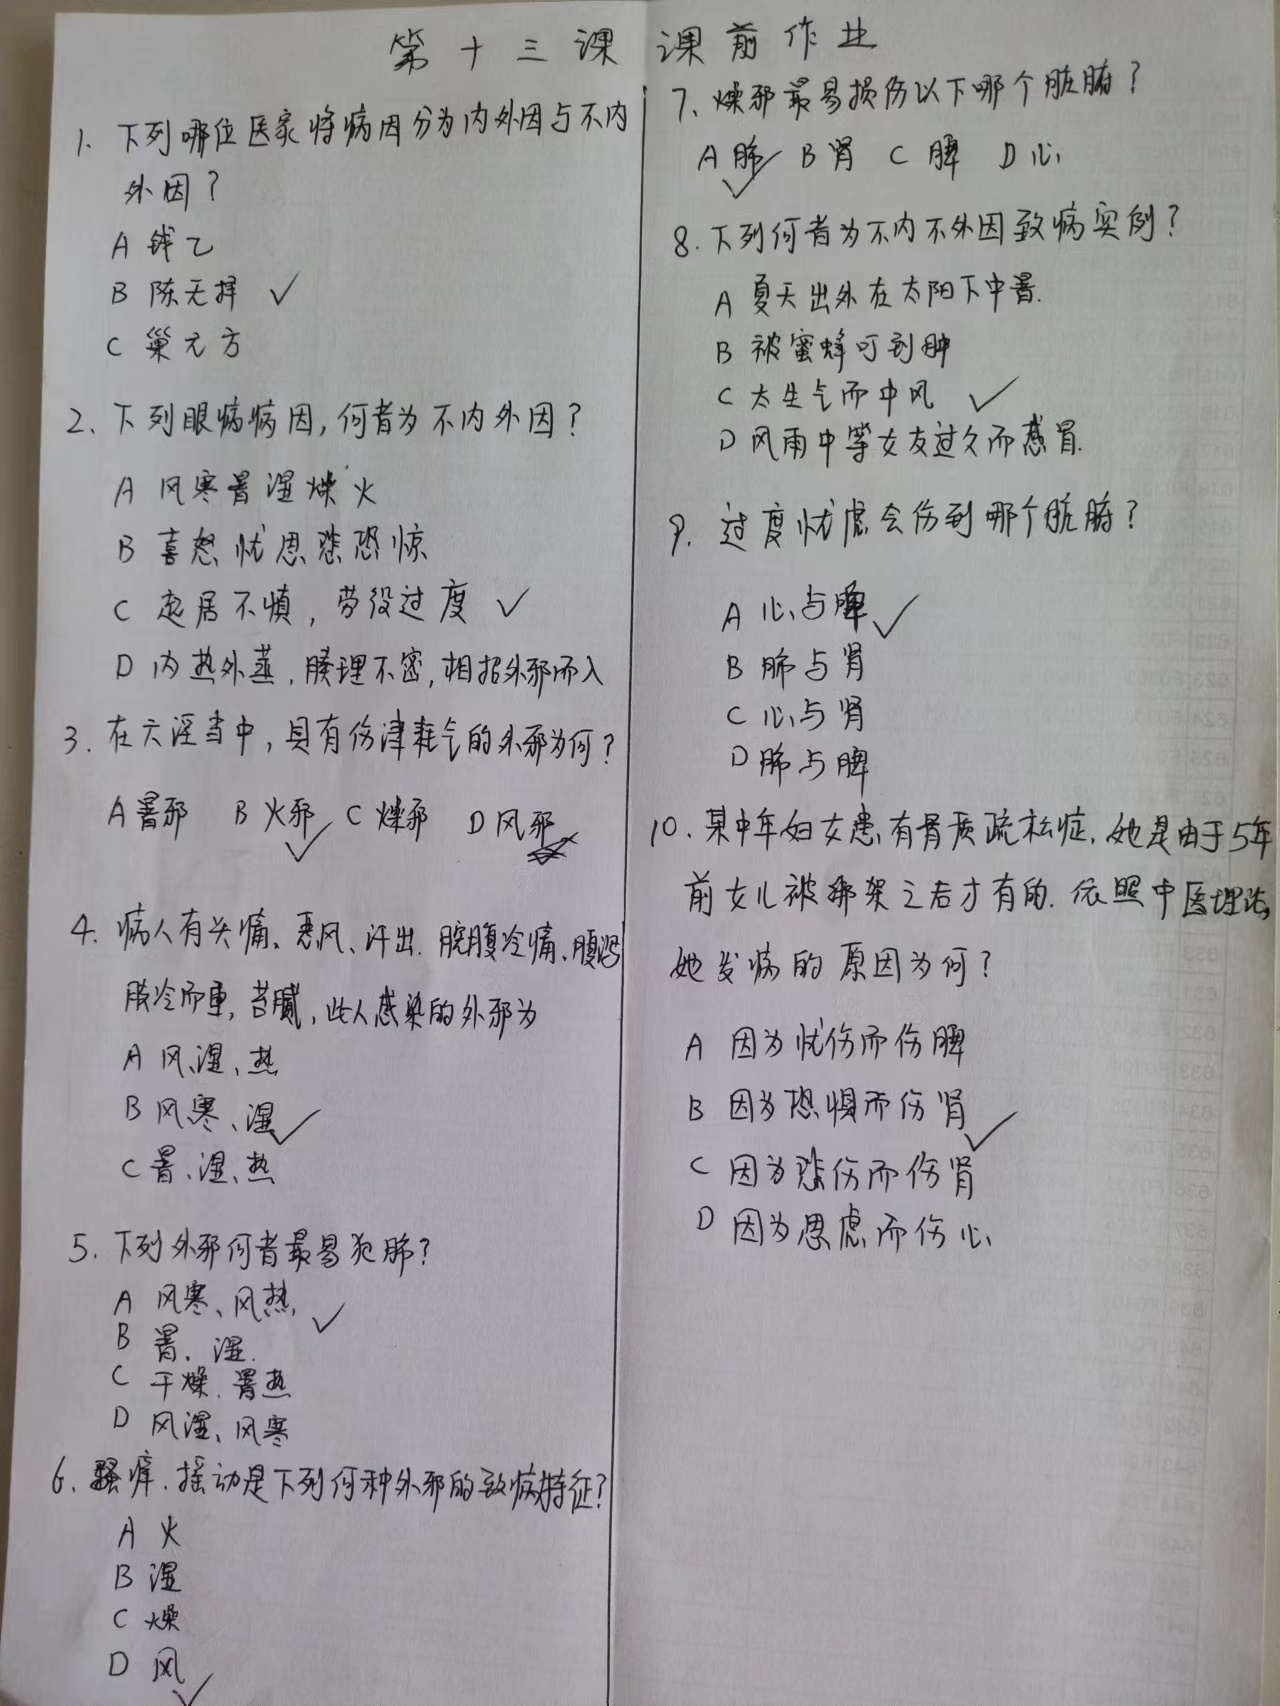 第十三课 课前作业
1. 下列哪位医家将病因分为内外因与不内
外因?
A 钱乙
B 陈无择 ✓
C 巢元方
2、下列眼病病因,何者为不内外因?
A 风寒暑湿燥火
B 喜怒忧思悲恐惊
C 起居不慎,劳役过度 ✓
D 内热外蒸,腠理不密,相招外邪而入
3. 在六淫当中,具有伤津耗气的外邪为何?
A 暑邪 B 火邪 ✓ C 燥邪 D 风邪
4. 病人有头痛、恶风、汗出.脘腹冷痛、腹泻
肢冷而重,苔腻,此人感染的外邪为
A 风、湿、热
B 风寒、湿 ✓
C 暑、湿、热
5. 下列外邪何者最易犯肺?
A 风寒、风热 ✓
B 暑、湿.
C 干燥.暑热
D 风湿、风寒
6. 骚痒.摇动是下列何种外邪的致病特征?
A 火
B 湿
C 燥
D 风 ✓
7. 燥邪最易损伤以下哪个脏腑?
A 肺 ✓ B 肾 C 脾 D 心
8. 下列何者为不内不外因致病实例?
A 夏天出外在太阳下中暑.
B 被蜜蜂叮到肿
C 太生气而中风 ✓
D 风雨中等女友过久而感冒.
9. 过度忧虑会伤到哪个脏腑?
A 心与脾 ✓
B 肺与肾
C 心与肾
D 肺与脾
10. 某中年妇女患有骨质疏松症.她是由于5年
前女儿被绑架之后才有的.依照中医理论,
她发病的原因为何?
A 因为忧伤而伤脾
B 因为恐惧而伤肾 ✓
C 因为悲伤而伤肾
D 因为思虑而伤心